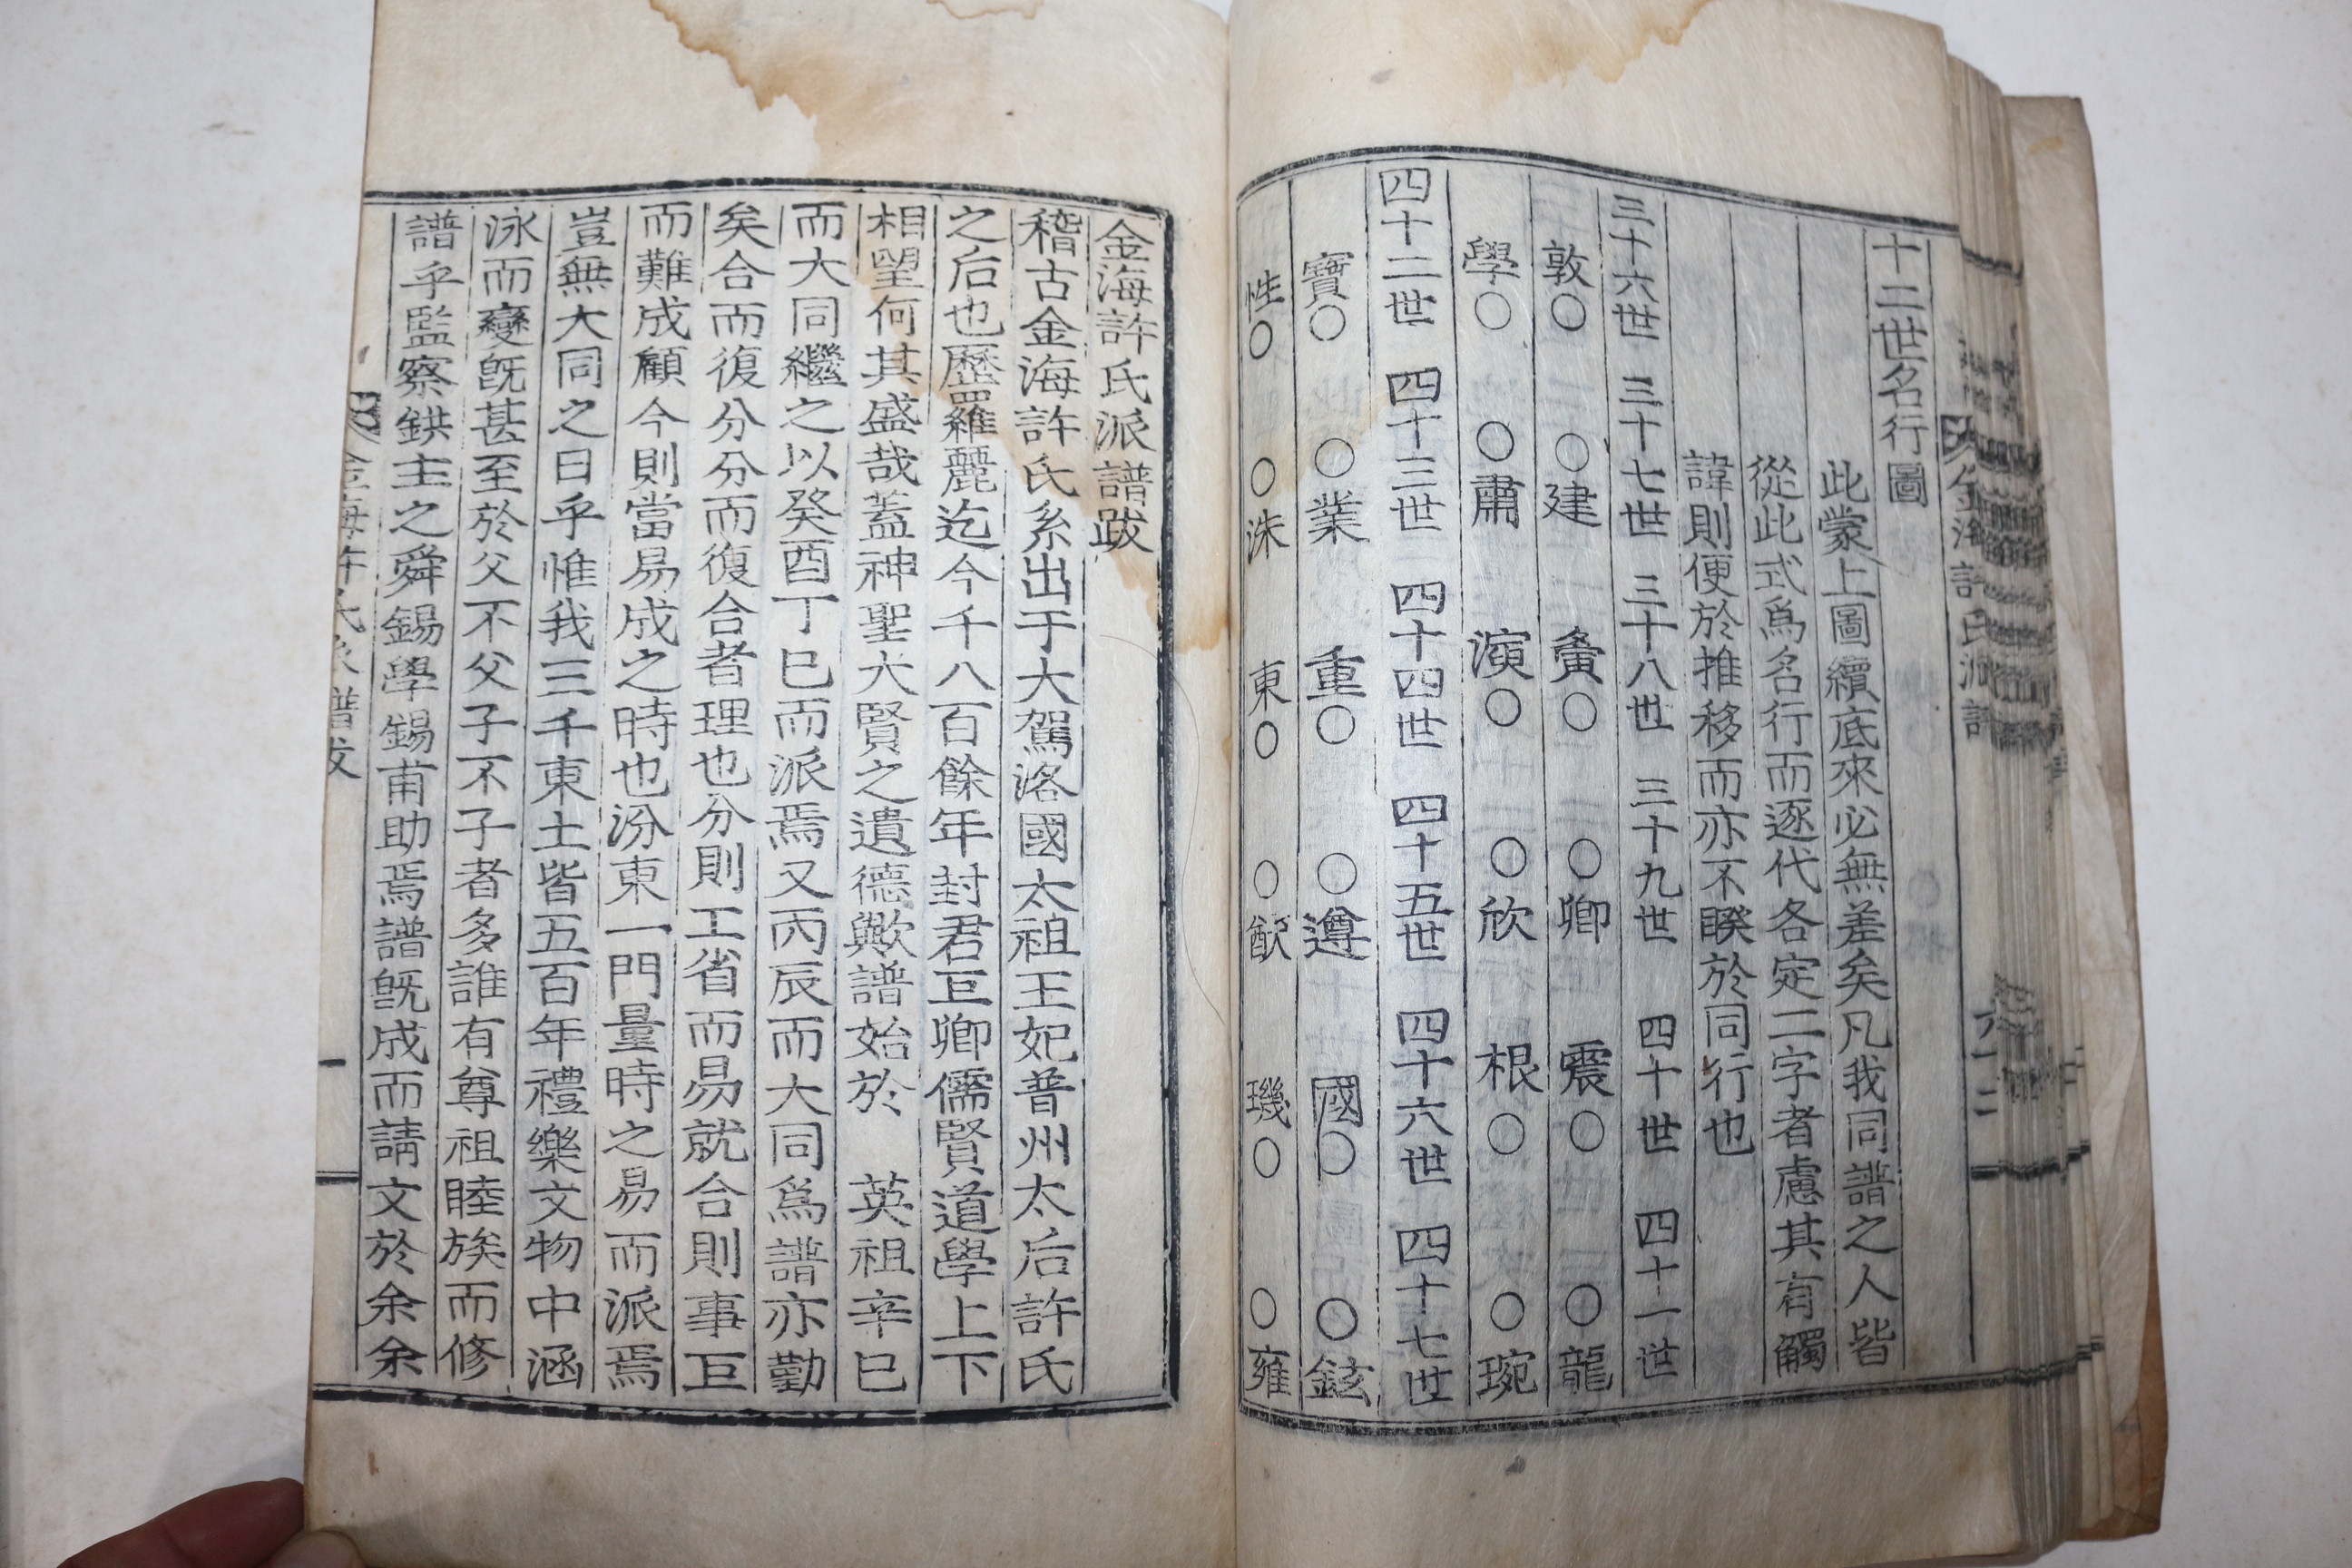 金海許氏派譜
六十二
十二世名行圖
此蒙上圖續底來必無差矣凡我同譜之人皆
從此式爲名行而逐代各定二字者慮其有觸
諱則便於推移而亦不睽於同行也
三十六世 三十七世 三十八世 三十九世 四十世 四十一世
敦〇 〇建 夤〇 〇卿 震〇 〇龍
學〇 〇肅 演〇 〇欣 根〇 〇琬
四十二世 四十三世 四十四世 四十五世 四十六世 四十七世
寶〇 〇業 重〇 〇遵 國〇 〇鉉
性〇 〇洙 東〇 〇猷 璣〇 〇雍
金海許氏派譜跋
稽古金海許氏系出于大駕洛國太祖王妃普州太后許氏
之后也歷羅麗迄今千八百餘年封君巨卿儒賢道學上下
相望何其盛哉蓋神聖大賢之遺德歟譜始於 英祖辛巳
而大同繼之以癸酉丁巳而派焉又丙辰而大同爲譜亦勤
矣合而復分分而復合者理也分則工省而易就合則事巨
而難成顧今則當易成之時也汾東一門量時之易而派焉
豈無大同之日乎惟我三千東土皆五百年禮樂文物中涵
泳而變旣甚至於父不父子不子者多誰有尊祖睦族而修
譜乎監察鉷主之舜錫學錫甫助焉譜旣成而請文於余余
金海許氏派譜文